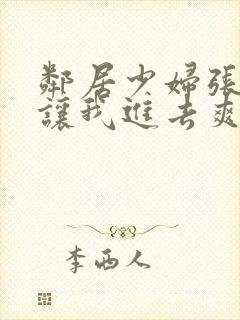 鄰居少婦張
讓我進去爽
李西人